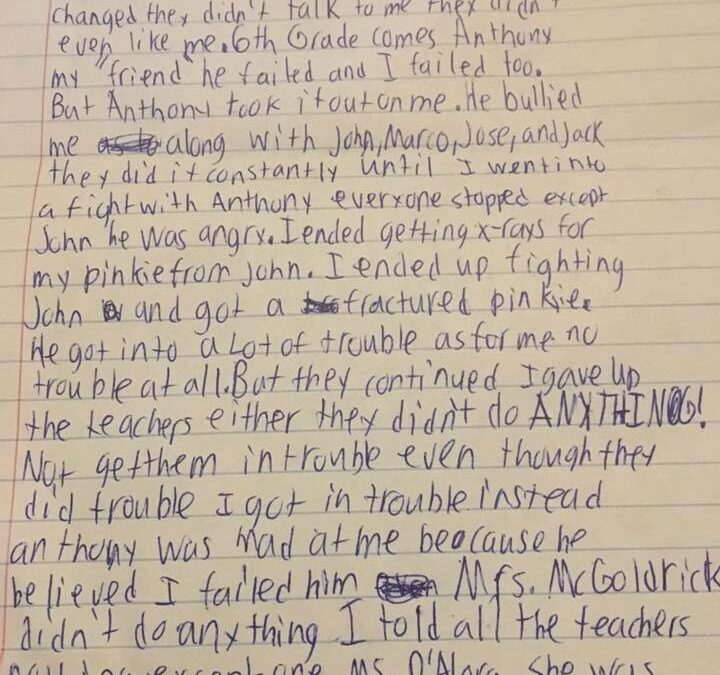 changed they didn't talk to me they didn't
even like me. 6th Grade comes Anthony
my "friend" he failed and I failed too.
But Anthony took it out on me. He bullied
me along with John, Marco, Jose, and Jack
they did it constantly until I went into
a fight with Anthony everyone stopped except
John he was angry. I ended getting x-rays for
my pinkie from john. I ended up fighting
John and got a fractured pinkie.
He got into a Lot of trouble as for me no
trouble at all. But they continued I gave up
the teachers either they didn't do ANYTHING!
Not get them in trouble even though they
did trouble I got in trouble instead
anthony was mad at me beocause he
believed I failed him Mrs. McGoldrick
didn't do anything I told all the teachers
except one Ms. D'Alora she was